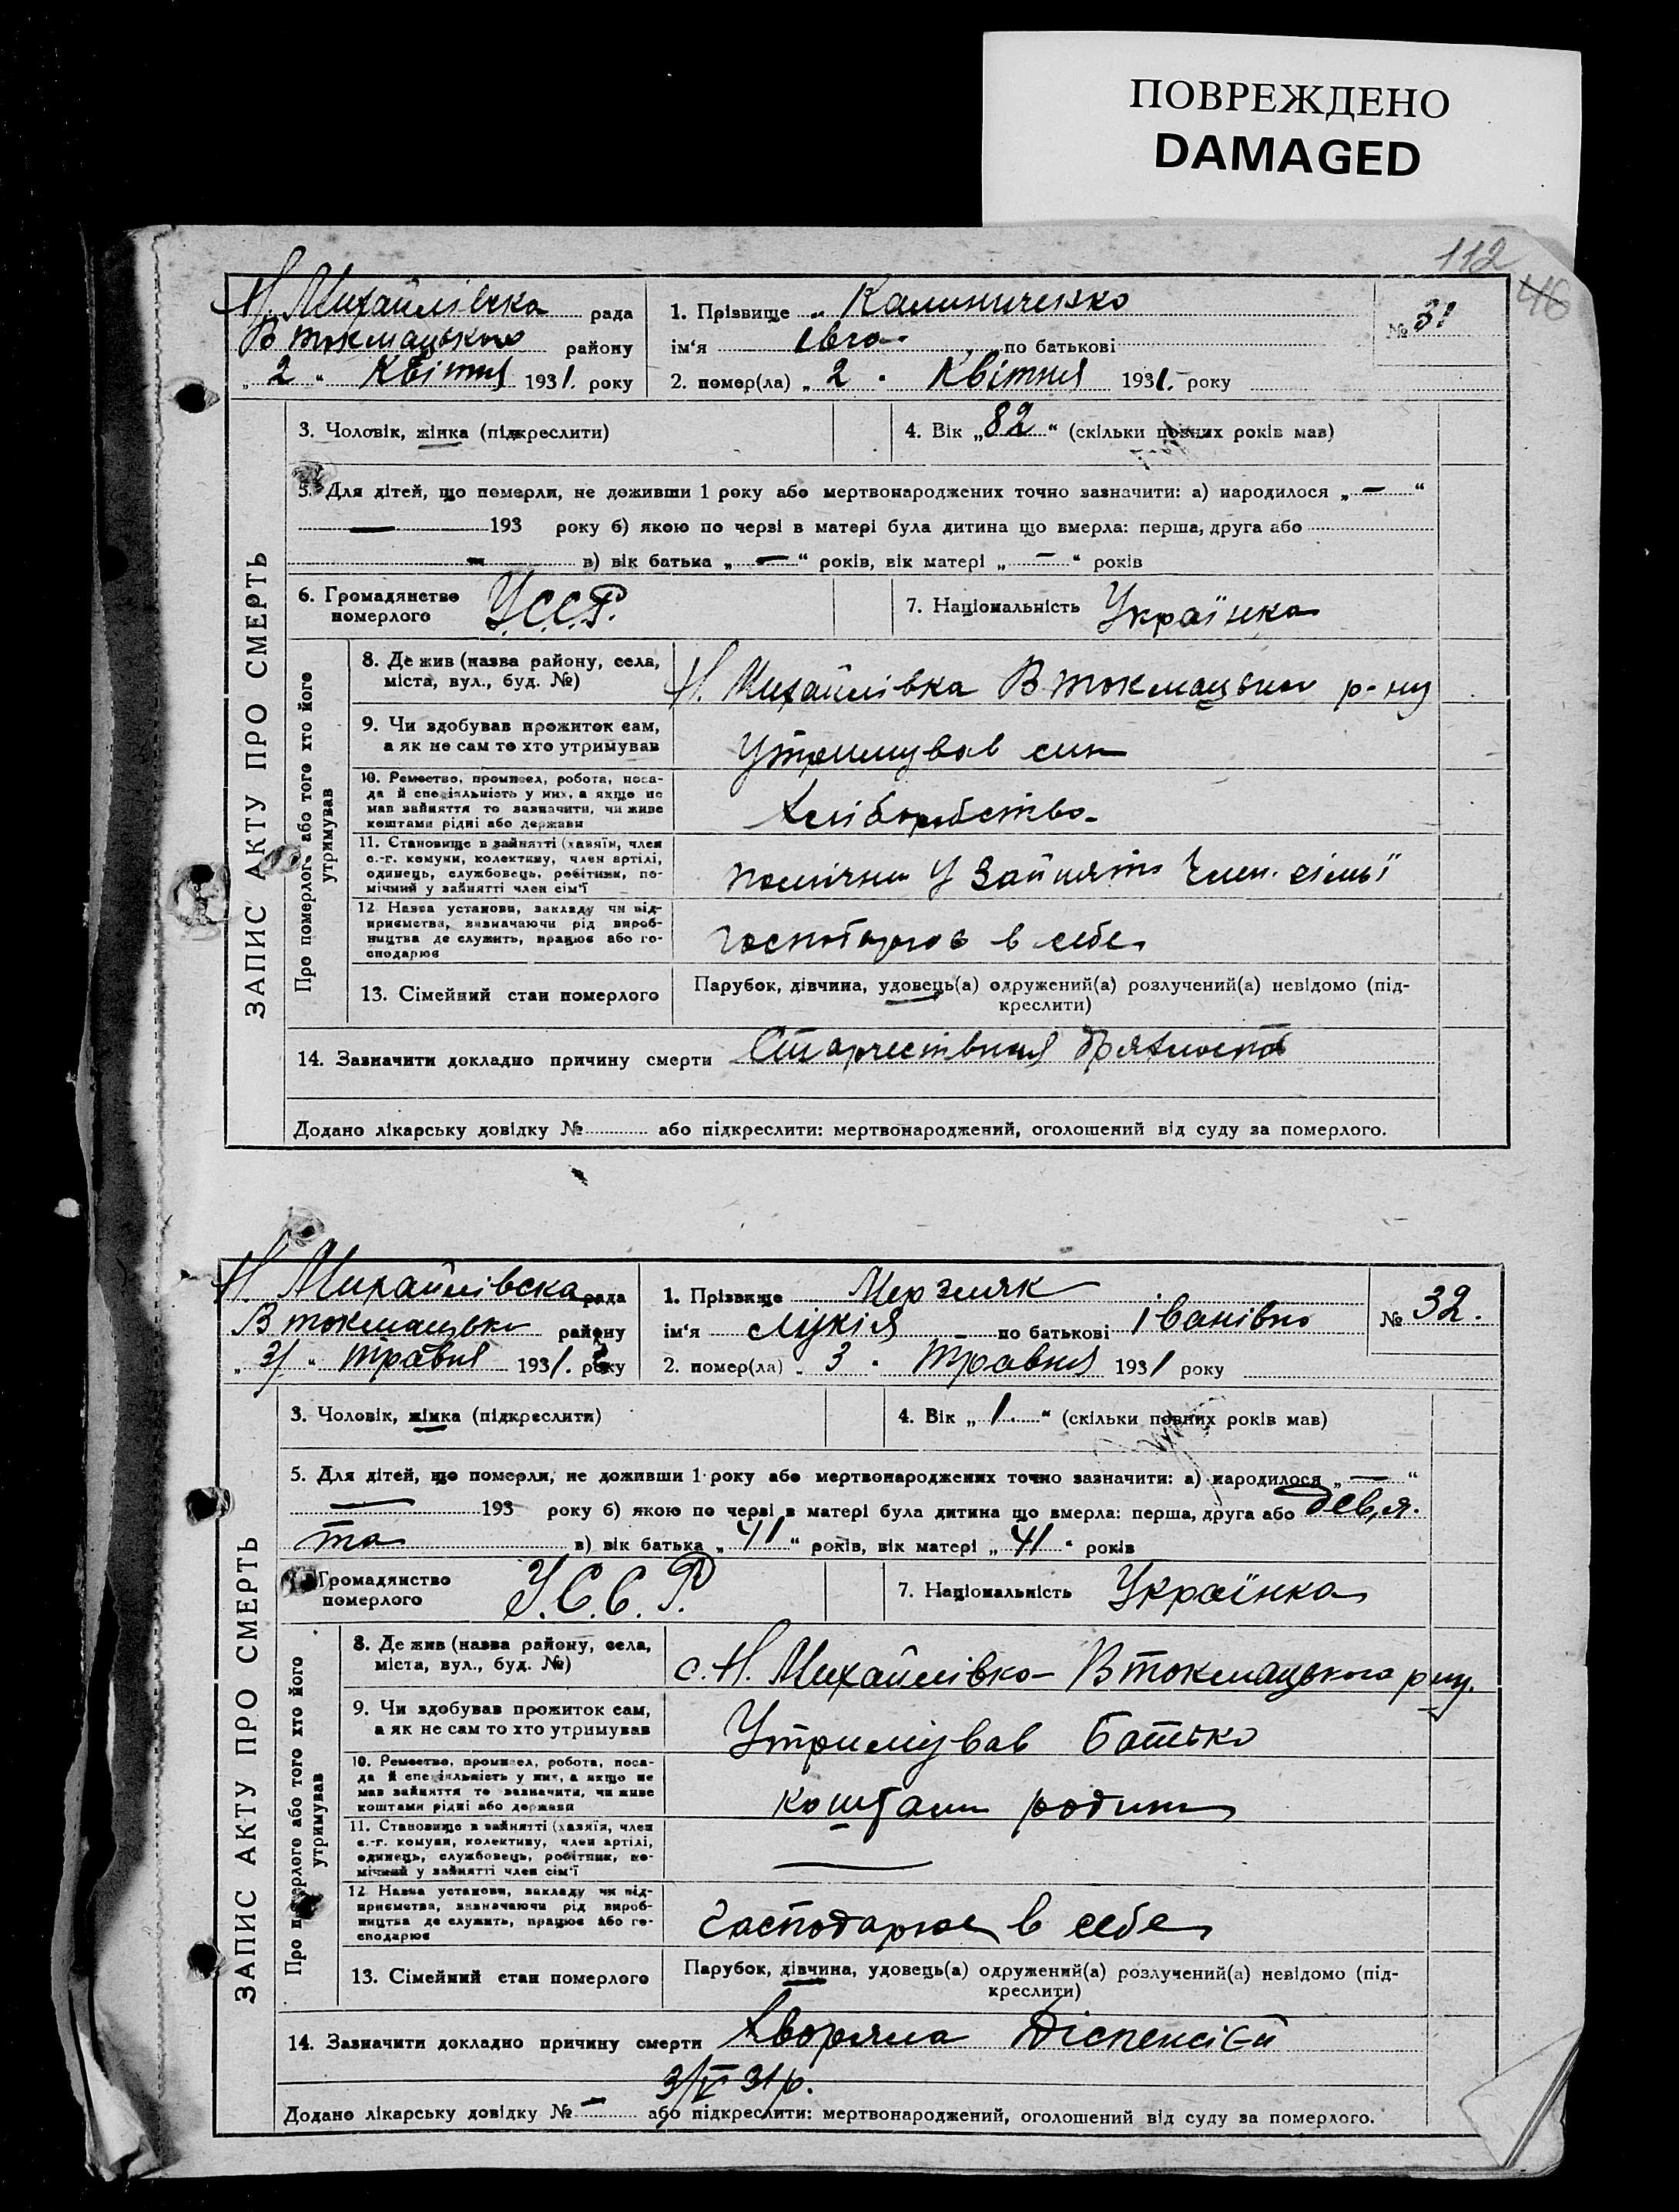 ПОВРЕЖДЕНО
DAMAGED
112
46
Н. Михайлівська рада
В токмацького району
„ 2 “ Квітня 1931. року
1. Прізвище „ Калиниченко
ім'я по батькові
2. помер(ла) „ 2 “ Квітня 1931. року
№ 31
3. Чоловік, жінка (підкреслити)
4. Вік „ 82 “ (скільки повних років мав)
5. Для дітей, що померли, не доживши 1 року або мертвонароджених точно зазначити: а) народилося „ — “
— 193 року б) якою по черзі в матері була дитина що вмерла: перша, друга або
— в) вік батька „ — “ років, вік матері „ — “ років
6. Громадянство
померлого
У.С.С.Р.
7. Національність Українка
ЗАПИС АКТУ ПРО СМЕРТЬ
Про померлого або того хто його
утримував
8. Де жив (назва району, села,
міста, вул., буд. №)
Н. Михайлівка В токмацького р-ну
9. Чи здобував прожиток сам,
а як не сам то хто утримував
Утримував син
10. Ремество, промисел, робота, поса-
да й спеціяльність у них, а якщо не
мав зайняття то зазначити, чи живе
коштами рідні або держави
Хліборобство
11. Становище в зайнятті (хазяїн, член
с.-г. комуни, колективу, член артілі,
одинець, службовець, робітник, по-
мічний у зайнятті член сім'ї
помічни у зайняті член. сімьї
12 Назва установи, закладу чи під-
приємства, зазначаючи рід вироб-
ництва де служить, працює або го-
сподарює
господарює в себе
13. Сімейний стан померлого
Парубок, дівчина, удовець(а) одружений(а) розлучений(а) невідомо (під-
креслити)
14. Зазначити докладно причину смерти
Додано лікарську довідку № або підкреслити: мертвонароджений, оголошений від суду за померлого.
Н. Михайлівска рада
В токмацьки району
„ 3/ “ травня 1931. року
1. Прізвище Мерзляк
ім'я Лукія по батькові Іванівно
2. помер(ла) „ 3 “ Травня 1931 року
№ 32.
3. Чоловік, жінка (підкреслити)
4. Вік „ 1. “ (скільки повних років мав)
5. Для дітей, що померли, не доживши 1 року або мертвонароджених точно зазначити: а) народилося „ — “
— 193 року б) якою по черзі в матері була дитина що вмерла: перша, друга або дев,я-
та в) вік батька „ 41 “ років, вік матері „ 41 “ років
Громадянство
померлого
У.С.С.Р.
7. Національність Українка
ЗАПИС АКТУ ПРО СМЕРТЬ
Про померлого або того хто його
утримував
8. Де жив (назва району, села,
міста, вул., буд. №)
с. Н. Михайлівка В токмацького р ну.
9. Чи здобував прожиток сам,
а як не сам то хто утримував
Утримував батько
10. Ремество, промисел, робота, поса-
да й спеціяльність у них, а якщо не
мав зайняття то зазначити, чи живе
коштами рідні або держави
коштами родини
11. Становище в зайнятті (хазяїн, член
с.-г. комуни, колективу, член артілі,
одинець, службовець, робітник, по-
мічний у зайнятті член сім'ї
—
12 Назва установи, закладу чи під-
приємства, зазначаючи рід вироб-
ництва де служить, працює або го-
сподарює
господарює в себе
13. Сімейний стан померлого
Парубок, дівчина, удовець(а) одружений(а) розлучений(а) невідомо (під-
креслити)
14. Зазначити докладно причину смерти Хворяла Діспенсієй
3/V 31 р.
Додано лікарську довідку № — або підкреслити: мертвонароджений, оголошений від суду за померлого.